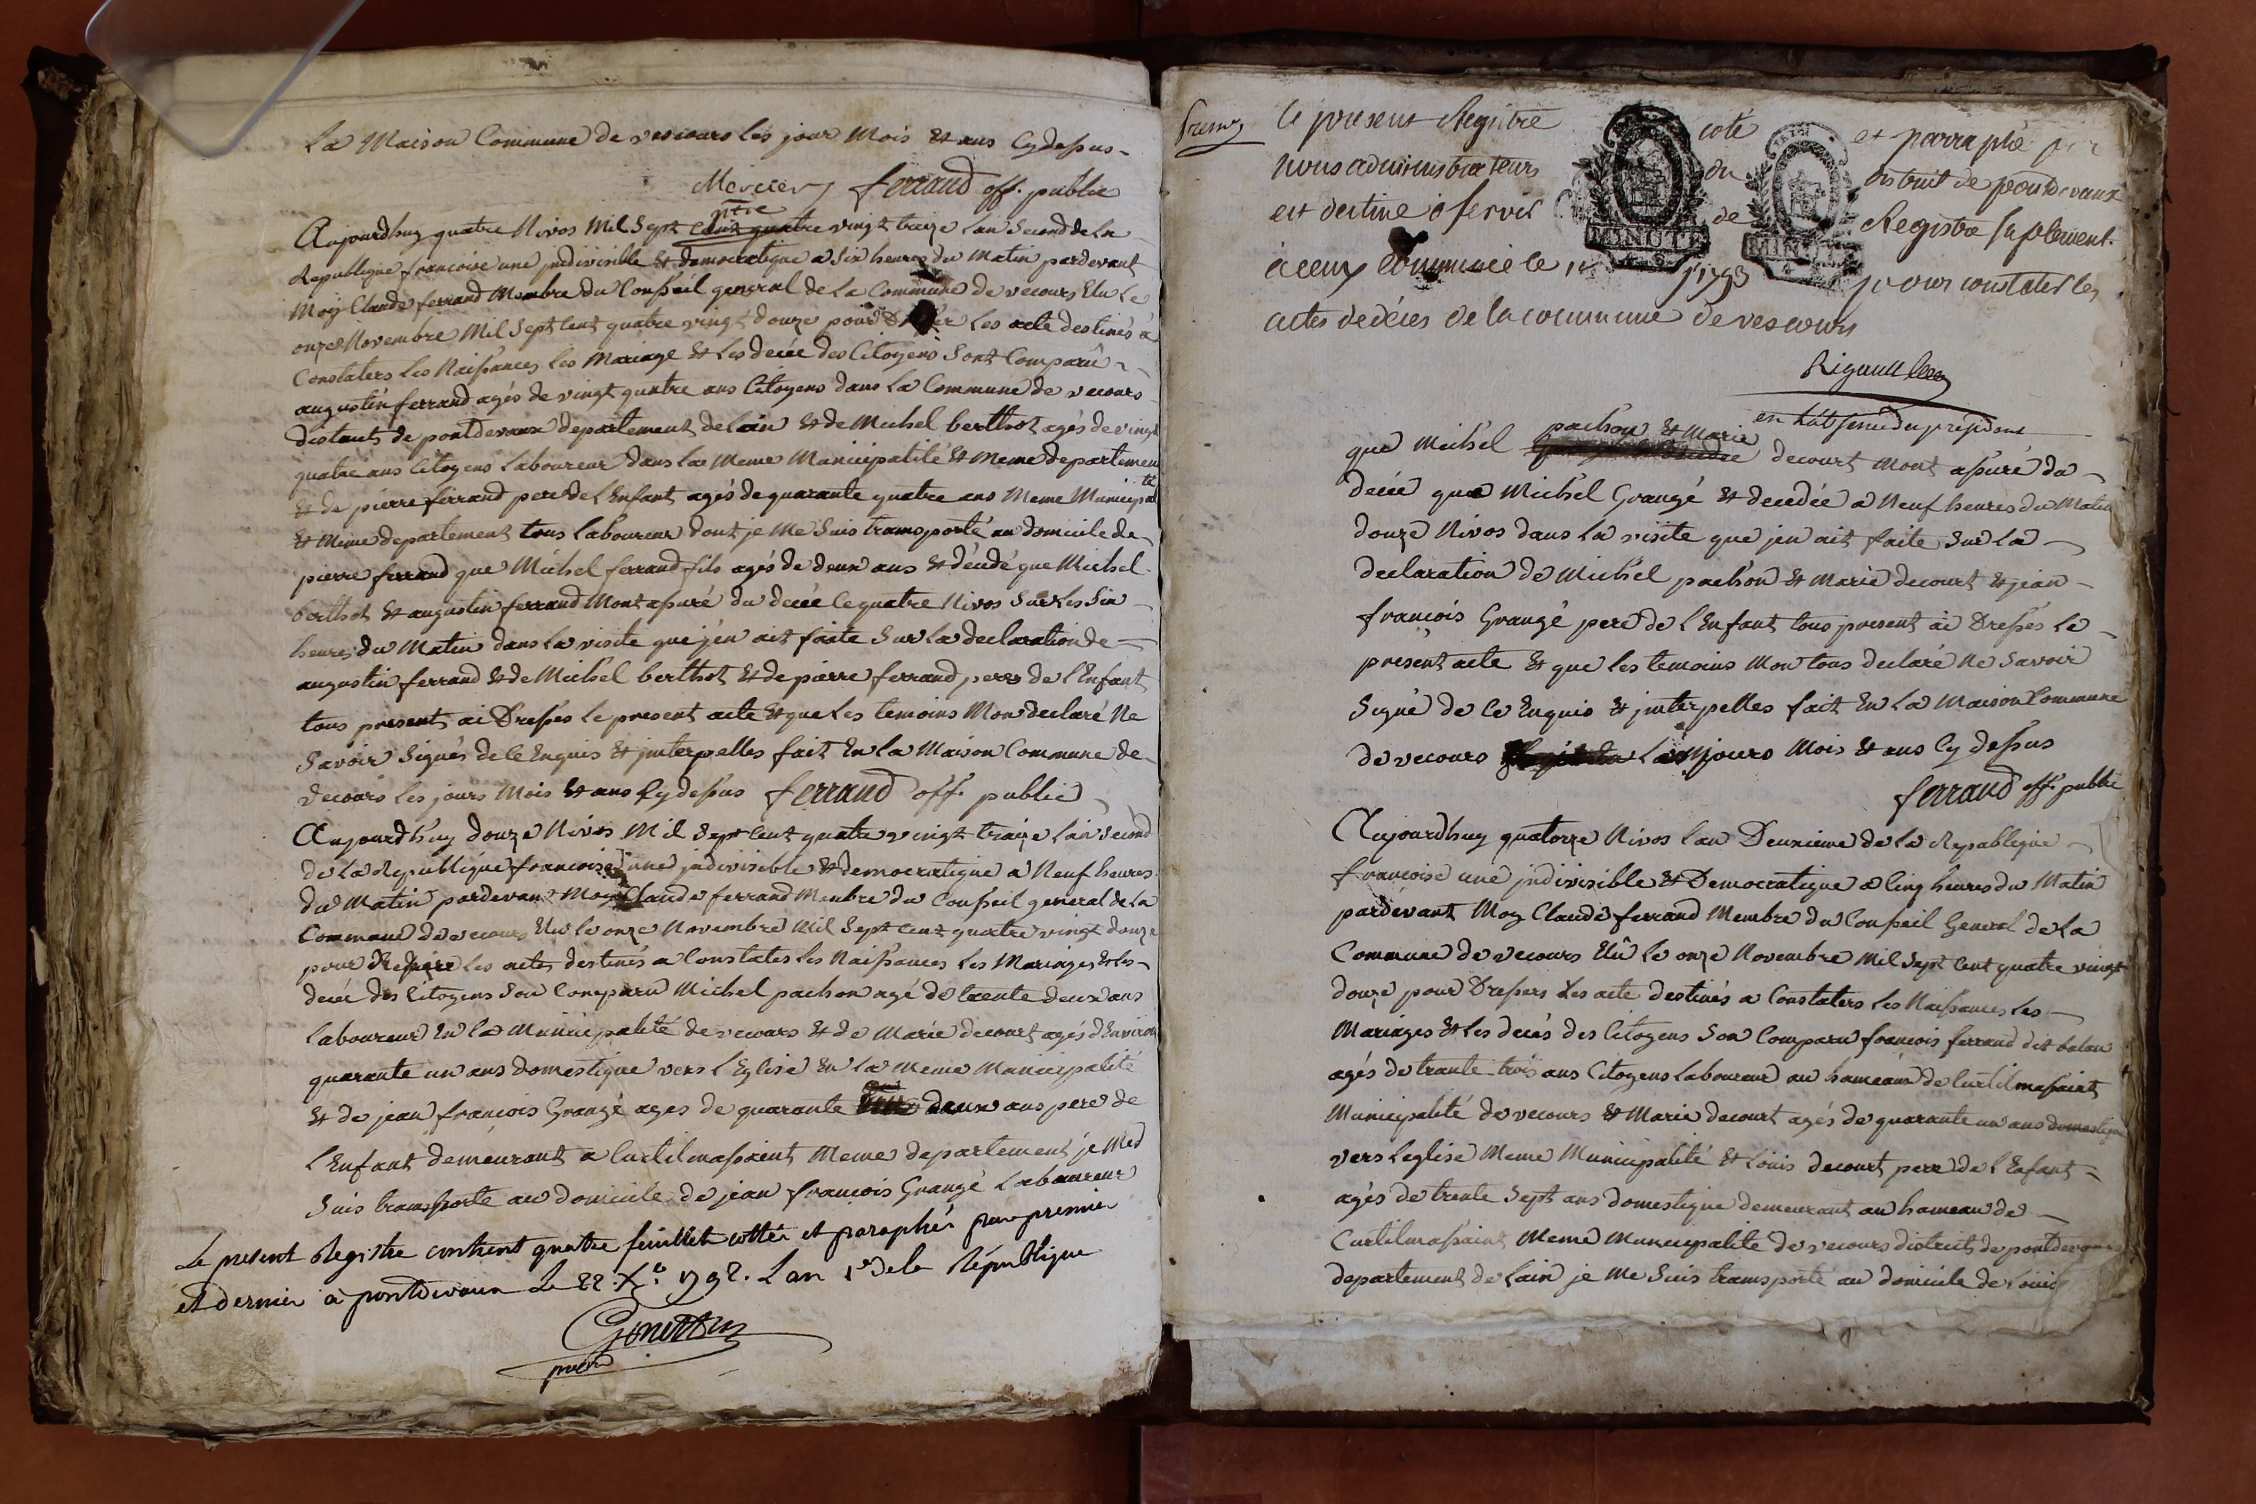 La Maison Commune de vescours les jour Mois et ans Cydessus
Mercier ferrand off. public
Aujourdhuy quatre Nivos Mil Sept Cent quatre vingt traize Lan Second de La
Republique francoise une indivisible et democratique a Six heures du Matin pardevant
Moy Claude ferrand Membre du Conseil general de La Commune de vecours Elu Le
onze Novembre Mil Sept Cent quatre vingt douze pour Les acte destinés à
Constaters les Naissances les Mariage et les decée des Citoyens Sont Comparû
augustin ferrand agés de vingt quatre ans Citoyens dans La Commune de vecours
distants de pontdevaux departement de Lain et de Michel berthot agés de vingt
quatre ans Citoyens Laboureur dans La Meme Municipalité et Meme departement
et de pierre ferrand pere de L'Enfant agés de quarante quatre ans Meme Municipalté
et Meme departement tous Laboureur dont je Me Suis transporté au domicile de
pierre ferrand que Michel ferrand fils agés de deux ans et décédé que Michel
berthot et augustin ferrand Mont assuré du decée Le quatre Nivos Sur les Six
heures du Matin dans La visite que j'en ait faite Sur La declaration de
augustin ferrand et de Michel berthot et de pierre ferrand peres de L'Enfant
tous present ai Dressés le present acte et que Les temoins Mon declaré Ne
Savoir Signés de Ce Enquis et jnterpelles fait En La Maison Commune de
vecours les jours Mois et ans Cy dessus ferrand off. public
Aujourdhuy douze Nivos Mil Sept Cent quatre vingt traize Lan Second
de La Republique francoise une jndivisible et democratique a Neuf heures
du Matin pardevant Moy Claude ferrand Membre du Conseil general de La
Commune de vecours Elu le onze Novembre Mil Sept Cent quatre vingt douze
pour Les actes destinés a Constates les Naissances Les Mariages et Les
decée des Citoyens Son Comparu Michel pachon agé de trente deux ans
Laboureur En La Municipalité de vecours et de Marie decourt agés d'Environ
quarante un ans domestique vers L'Eglise En La Meme Municipalité
et de jean françois Grangé ages de quarante deux ans pere de
L'Enfant demeurant a Curtilmassaint Meme departement je Me
Suis transporte au domicile de jean françois Grangé Laboureur
Le present Registre contient quatre feuillets cottés et paraphés par premier
et dernier à pontdevaux Le 22 Xbre 1792. Lan 1er de la République
ce present Registre coté et parraphé par
nous administrateurs du district de pontdevaux
est destiné a servir de Registre suplement.
à celuy commencé le 1793 pour constater les
actes de décès de la commune de vescours
que Michel pachon et Marie decourt Mont assuré du
decée que Michel Grangé et decedée a Neuf heures du Matin
douze Nivos dans La visite que jen ait faite Sur La
declaration de Michel pachon et Marie decourt et jean
françois Grangé pere de L'Enfant tous present ai Dressés Le
present acte et que les temoins Mon tous declaré Ne Savoir
Signé de Ce Enquis et jnterpelles fait En La Maison Commune
de vecours Les jours Mois et ans Cy dessus
ferrand off. public
Aujourdhuy quatorze Nivos Lan Deuxieme de La Republique
francoise une jndivisible et Democratique a Cinq heures du Matin
pardevant Moy Claude ferrand Membre du Conseil General de La
Commune de vecours Elû Le onze Novembre Mil Sept Cent quatre vingt
douze pour Dressers Les acte destinés a Constaters Les Naissances Les
Mariages et Les decés des Citoyens Son Comparu francois ferrand dit balan
agés de trante trois ans Citoyens Laboureur au hameaux de Curtilmassaint
Municipalité de vecours et Marie decourt agés de quarante un ans domestique
vers Leglise Meme Municipalité et Loüis decourt pere de L'Enfant
agés de trente Sept ans domestique demeurant au hameau de
Curtilmassaint Meme Municipalite de vecours districts de pontdevaux
departement de Lain je Me Suis transporté au domicile de Loüis